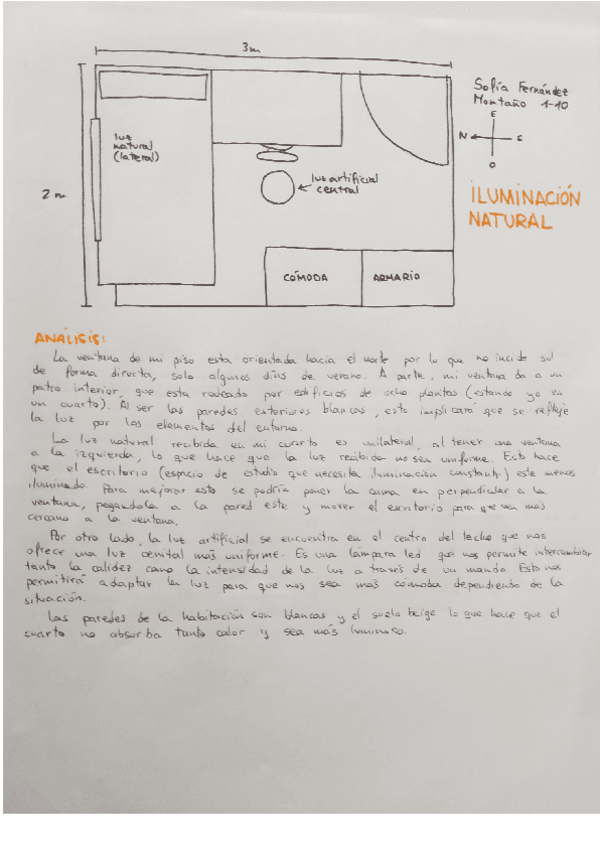 3m
Sofía Fernández
Montaño 1-10
E
N
S
O
luz
natural
(lateral)
2 m
luz artificial
central
ILUMINACIÓN
NATURAL
CÓMODA
ARMARIO
ANÁLISIS:
La ventana de mi piso esta orientada hacia el norte por lo que no incide sol
de forma directa, solo algunos días de verano. A parte, mi ventana da a un
patio interior, que esta rodeado por edificios de ocho plantas (estando yo en
un cuarto). Al ser las paredes exteriores blancas, esto implicará que se refleje
la luz por los elementos del entorno.
La luz natural recibida en mi cuarto es unilateral, al tener una ventana
a la izquierda, lo que hace que la luz recibida no sea uniforme. Esto hace
que el escritorio (espacio de estudio que necesita iluminación constante) este menos
iluminado. Para mejorar esto se podría poner la cama en perpendicular a la
ventana, pegandola a la pared este y mover el escritorio para que van más
cercano a la ventana.
Por otro lado, la luz artificial se encuentra en el centro del techo que nos
ofrece una luz cenital más uniforme. Es una lámpara led que nos permite intercambiar
tanto la calidez como la intensidad de la luz a través de un mando. Esto nos
permitirá adaptar la luz para que nos sea más cómoda dependiendo de la
situación.
Las paredes de la habitación son blancas y el suelo beige lo que hace que el
cuarto no absorba tanto calor y sea más luminoso.